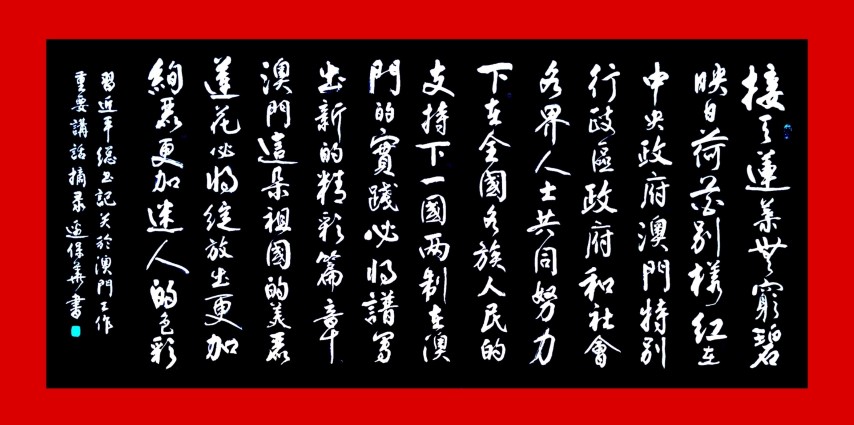 接天蓮葉無窮碧
映日荷花別樣紅在
中央政府澳門特别
行政區政府和社會
各界人士共同努力
下在全國各族人民的
支持下一國两制在澳
門的實踐必将譜寫
出新的精彩篇章
澳門這朵祖國的美麗
蓮花必将綻放出更加
絢麗更加迷人的色彩
習近平總书記关於澳門工作
重要講話摘录 保華書